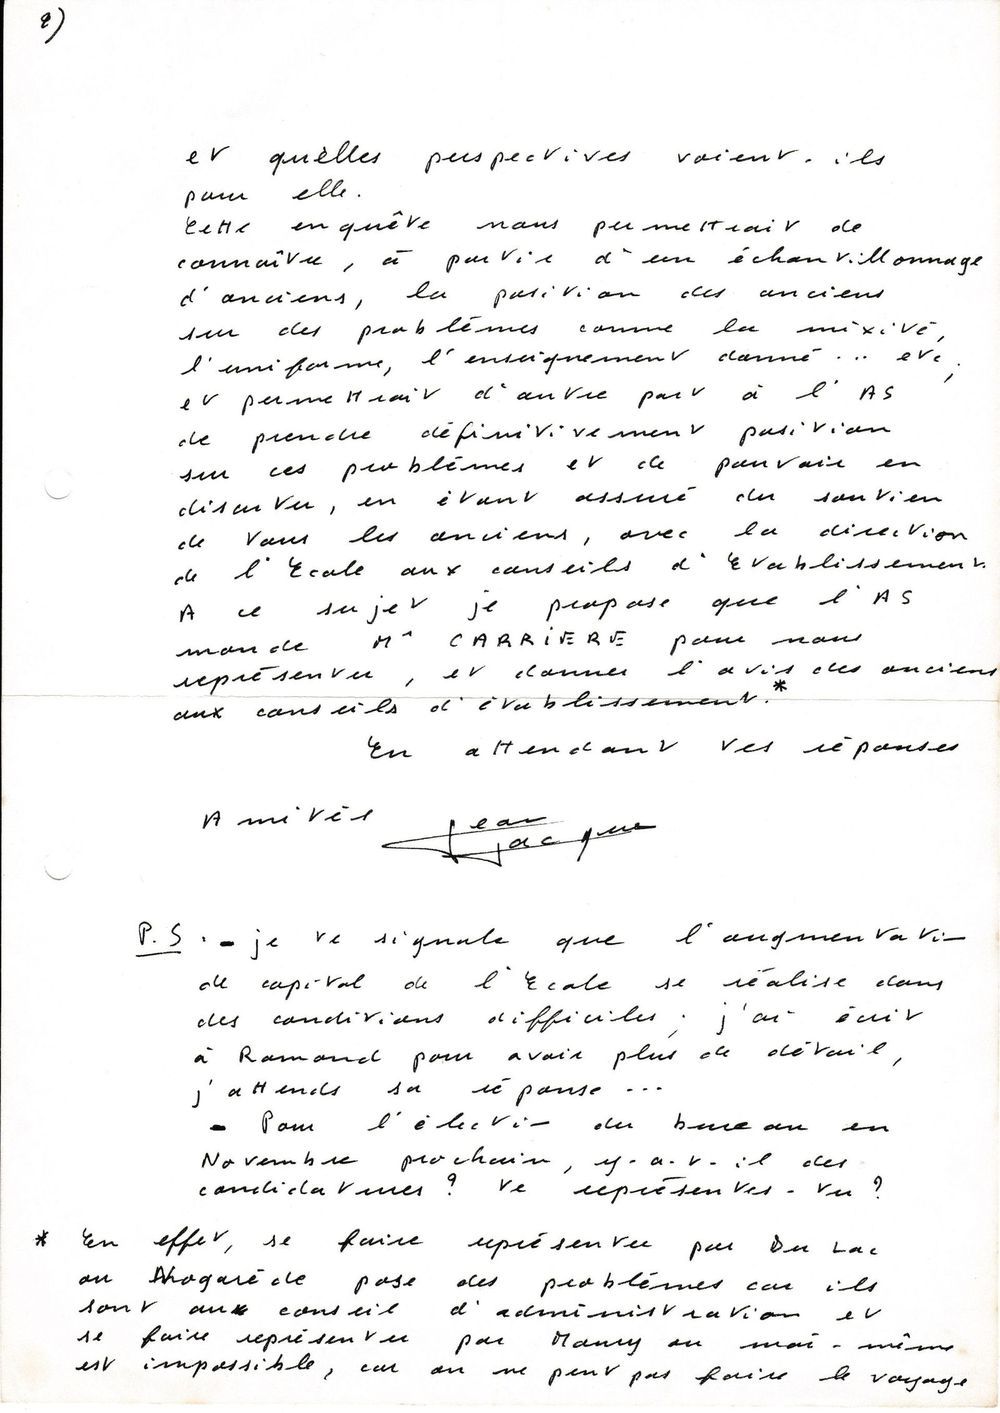 2)
et quelles perspectives voient-ils
pour elle.
Cette enquête nous permettrait de
connaître, à partir d'un échantillonnage
d'anciens, la position des anciens
sur des problèmes comme la mixité,
l'uniforme, l'enseignement donné ... etc,
et permettrait d'autre part à l'AS
de prendre définitivement position
sur ces problèmes et de pouvoir en
discuter, en étant assuré du soutien
de tous les anciens, avec la direction
de l'Ecole aux conseils d'Etablissement.
A ce sujet je propose que l'AS
mande Mr CARRIERE pour nous
représenter, et donner l'avis des anciens
aux conseils d'établissement.*
En attendant tes réponses
Amitiés Jean
Jacques
P.S : - je te signale que l'augmentati-
de capital de l'Ecole se réalise dans
des conditions difficiles ; j'ai écrit
à Ramond pour avoir plus de détail,
j'attends sa réponse ...
- Pour l'électi- du bureau en
Novembre prochain, y-a-t-il des
candidatures ? te représentes-tu ?
* En effet, se faire représenter par Du Lac
ou Nogarède pose des problèmes car ils
sont aux conseil d'administration et
se faire représenter par Maury ou moi-même
est impossible, car on ne peut pas faire le voyage